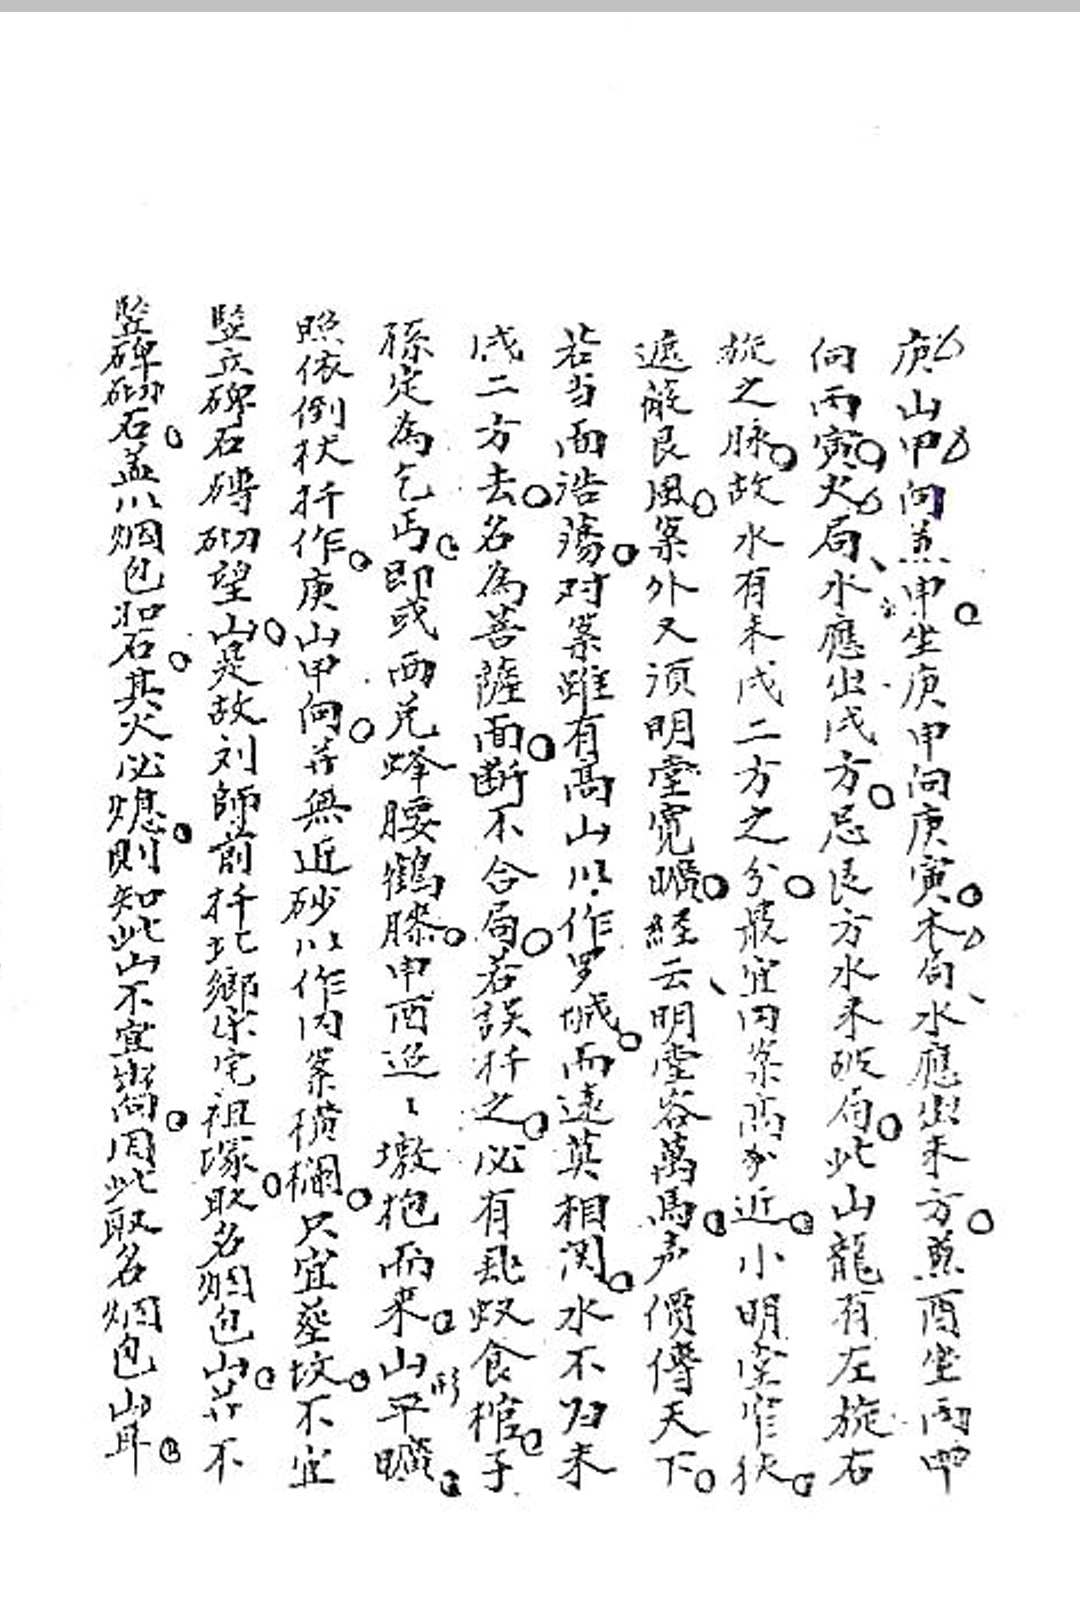 庚山甲向兼申坐庚申向庚寅木局水應出未方兼酉坐丙申
向丙寅火局水應出戌方忌艮方水来破局此山龍有左旋右
旋之脉故水有未戌二方之分最宜内案高步近小明堂窄狭
遮蔽艮風案外又須明堂寛曠経云明堂容萬馬声價傳天下
若当面浩蕩对案雖有高山以作罗城而遠莫相関水不归未
戌二方去名為菩薩面断不合局若誤扦之必有虱蚁食棺子
孫定為乞丐即或西兌蜂腰鶴膝申酉迢〻墩抱而来山形平曠
照依倒杖扦作庚山甲向并無近砂以作内案横欄只宜塟坟不宜
竪立碑石磚砌望山是故刘師前扦北鄉宋宅祖塚取名烟包山并不
竪碑砌石盖以烟包如石其火必熄則知此山不宜嵩向用此取名烟包山耳